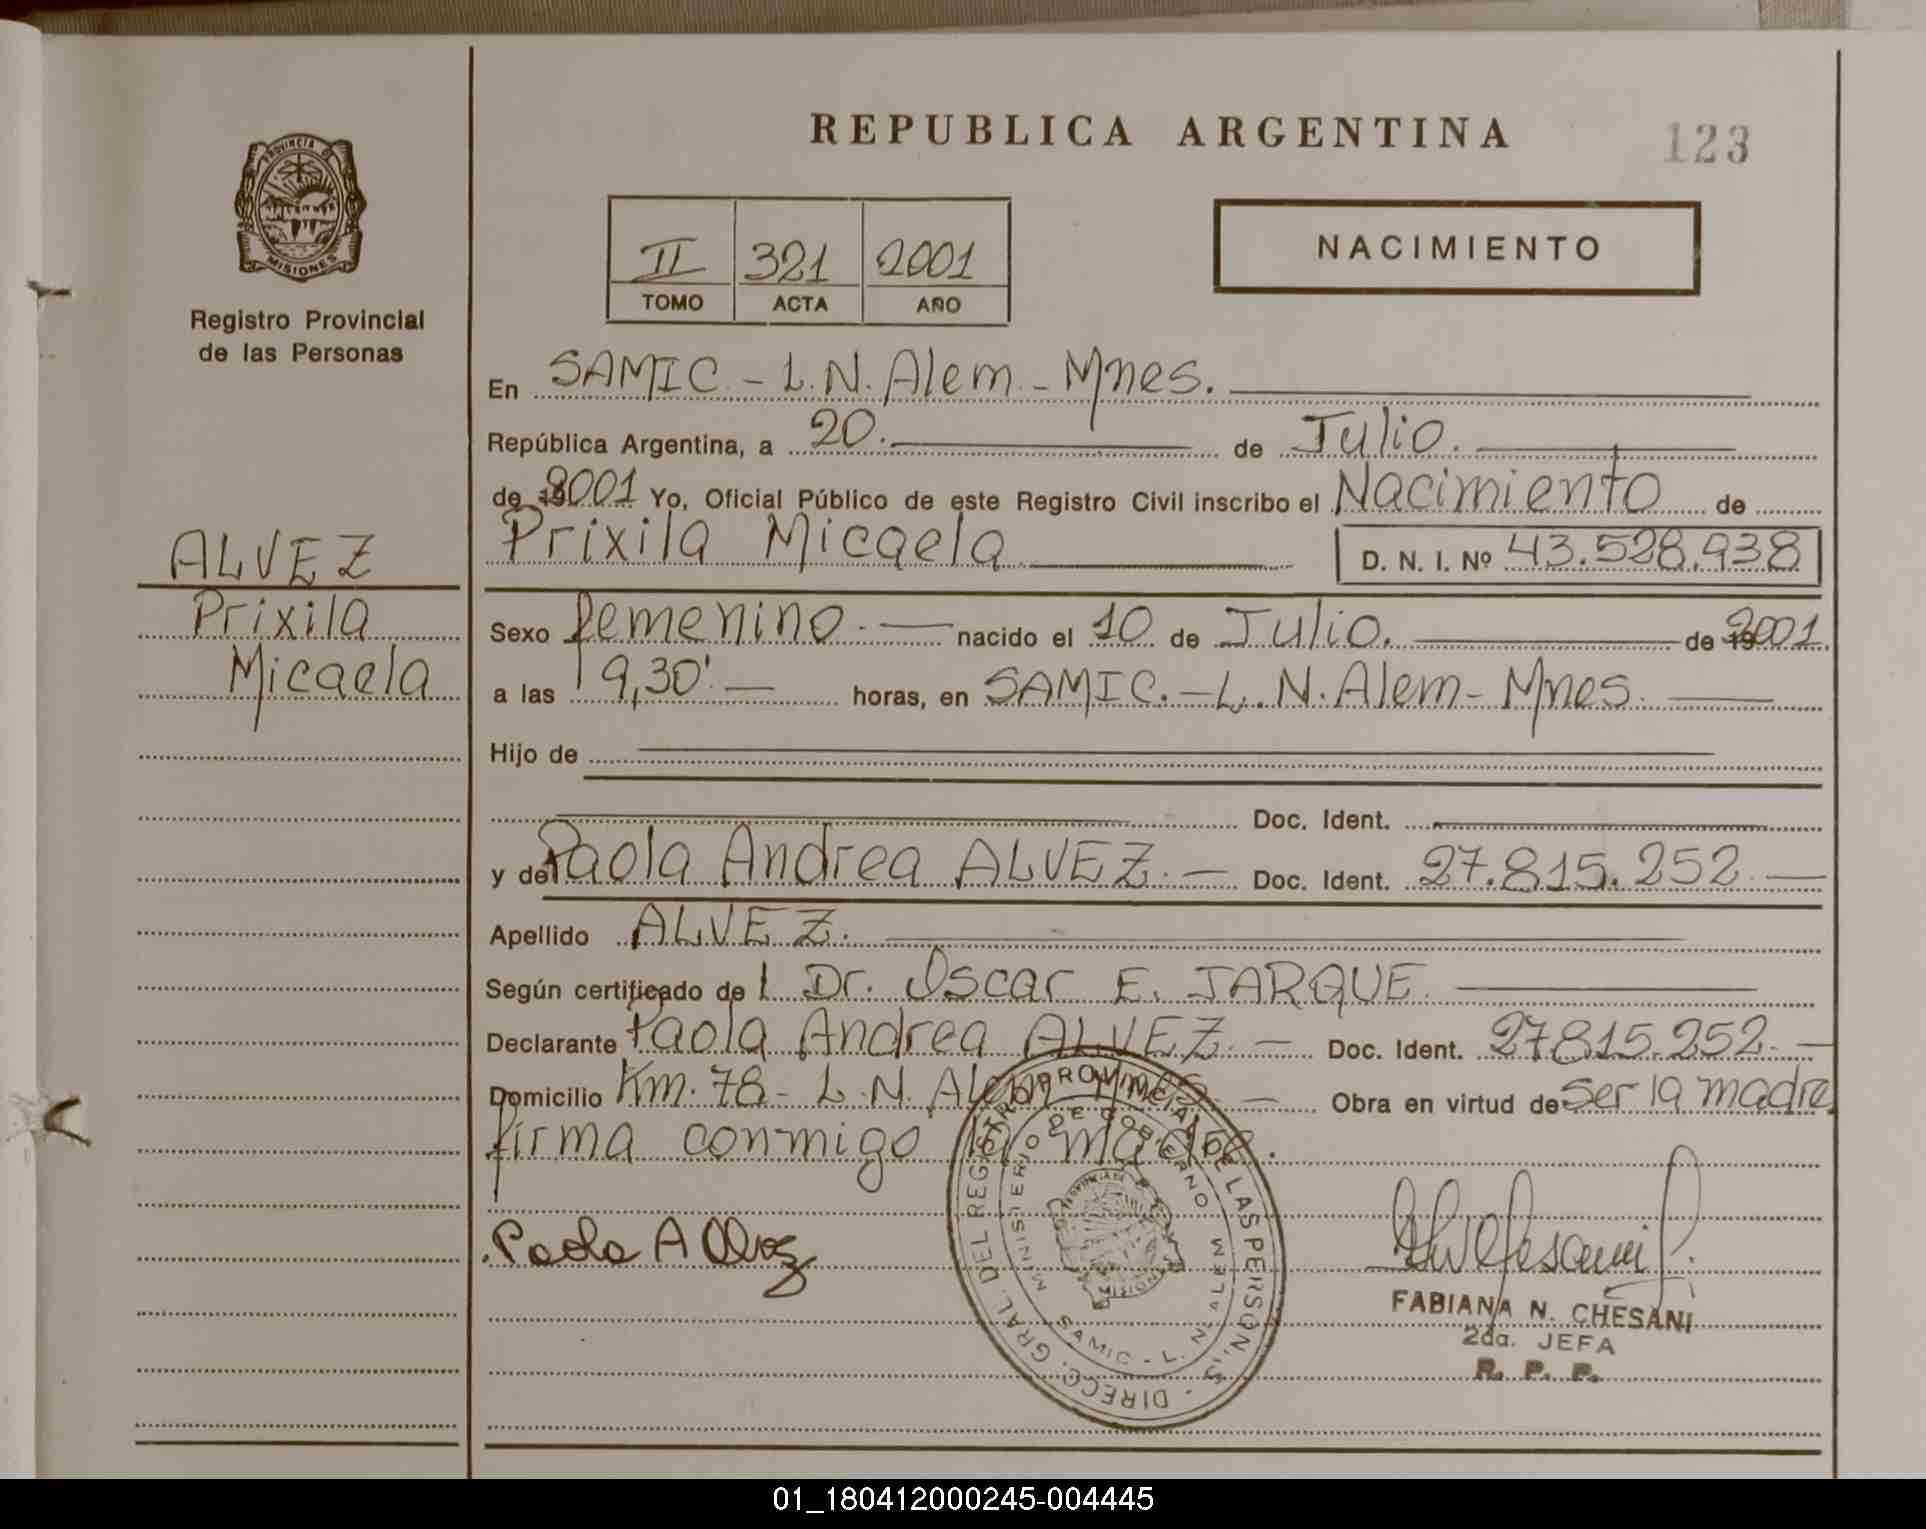 REPUBLICA ARGENTINA
123
PROVINCIA DE
MISIONES
Registro Provincial
de las Personas
II 321 2001
TOMO ACTA AÑO
NACIMIENTO
En SAMIC - L.N. Alem - Mnes.
República Argentina, a 20. de Julio.
de 2001 Yo, Oficial Público de este Registro Civil inscribo el Nacimiento de
Prixila Micaela D. N. I. Nº 43.528.938
ALVEZ
Prixila
Micaela
Sexo femenino. nacido el 10 de Julio. de 2001
a las 9,30' horas, en SAMIC. - L. N. Alem - Mnes.
Hijo de
Doc. Ident.
y de Paola Andrea ALVEZ. Doc. Ident. 27.815.252
Apellido ALVEZ.
Según certificado del Dr. Oscar E. JARQUE
Declarante Paola Andrea ALVEZ. Doc. Ident. 27815.252.
Domicilio Km. 78 - L. N. Alem Mnes Obra en virtud de ser la madre
firma conmigo la madre.
Paola A Alvez
DIRECC. GRAL. DEL REGISTRO PROVINCIAL DE LAS PERSONAS
MINISTERIO DE GOBIERNO
SAMIC - L. N. ALEM
PROVINCIA DE
MISIONES
FABIANA N. CHESANI
2da. JEFA
R. P. P.
01_180412000245-004445